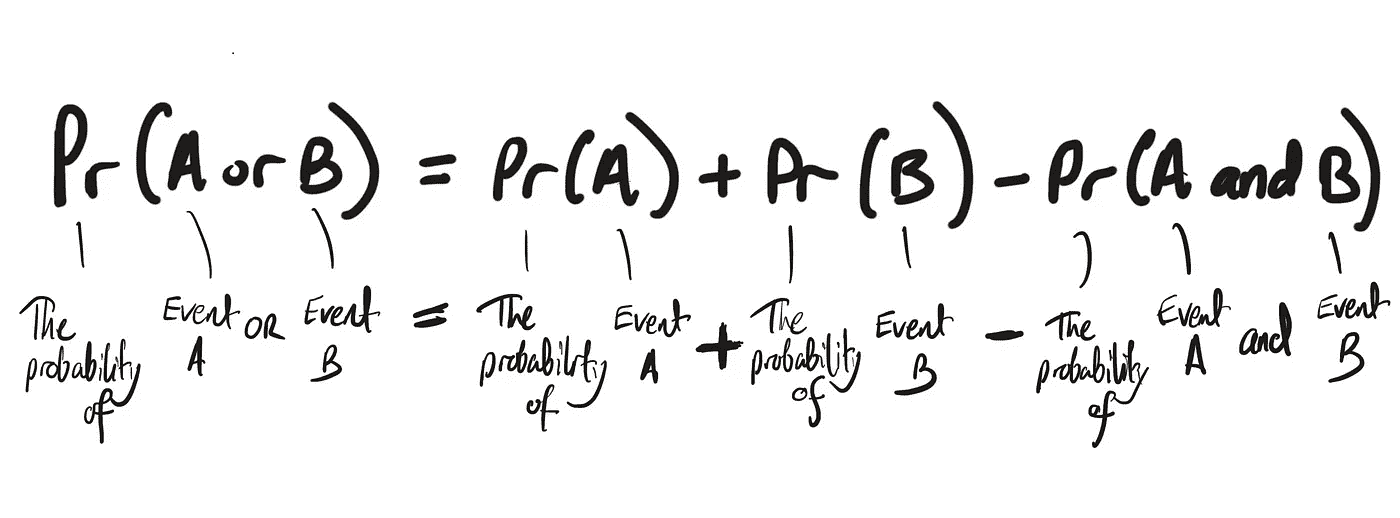 Pr(A or B) = Pr(A) + Pr(B) - Pr(A and B)
The probability of Event A OR Event B = The probability of Event A + The probability of Event B - The probability of Event A and Event B